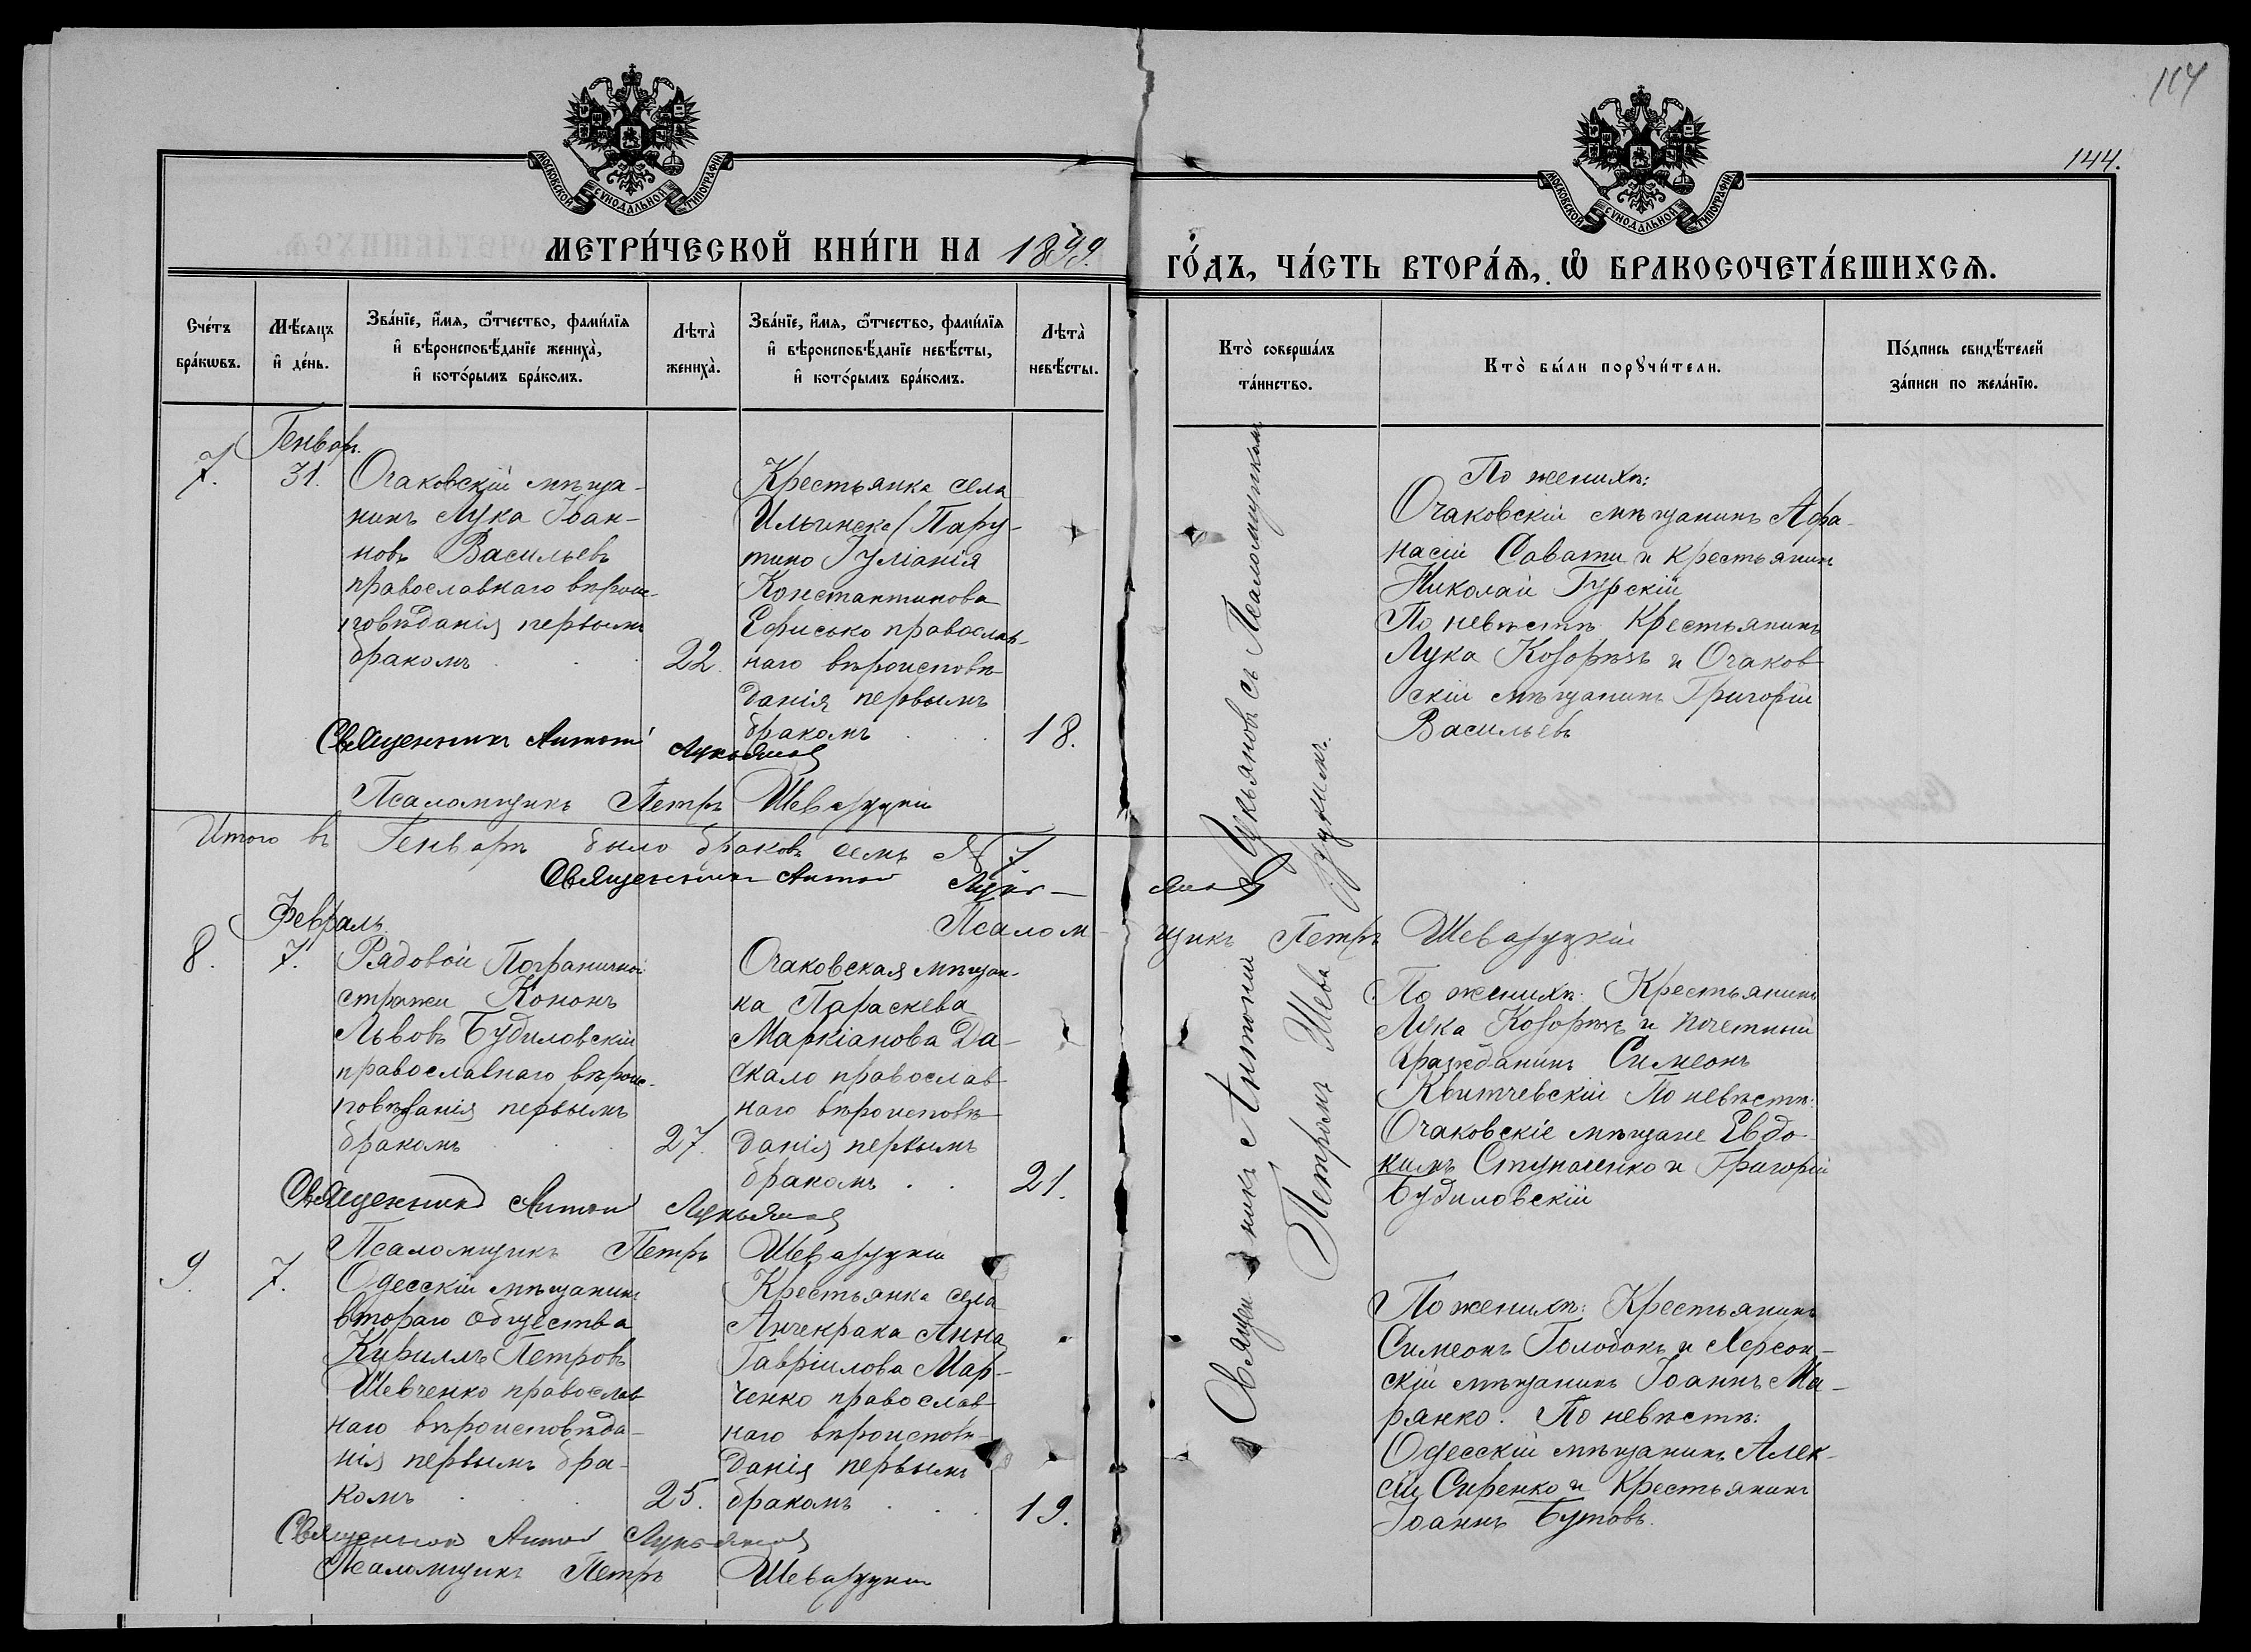 114
144.
МОСКОВСКОЙ СУНОДАЛЬНОЙ ТИПОГРАФІИ
МОСКОВСКОЙ СУНОДАЛЬНОЙ ТИПОГРАФІИ
МЕТРИ́ЧЕСКОЙ КНИ́ГИ НА 1899.
ГО́ДЪ, ЧА́СТЬ ВТОРА́Ѧ, Ѿ БРАКОСОЧЕТА́ВШИХСѦ.
Сче́тъ бра́кѡвъ.
Мѣ́сяцъ и҆ де́нь.
Зва́нїе, и҆́мѧ, ѻ҆́тчество, фами́лїѧ
и҆ вѣроисповѣ́данїе жениха̀,
и҆ кото́рымъ бра́комъ.
Лѣта̀ жениха̀.
Зва́нїе, и҆́мѧ, ѻ҆́тчество, фами́лїѧ
и҆ вѣроисповѣ́данїе невѣ́сты,
и҆ кото́рымъ бра́комъ.
Лѣта̀ невѣ́сты.
Кто̀ соверша́лъ та́инство.
Кто̀ бы́ли порꙋчи́тели.
По́дпись свидѣ́телей
за́писи по жела́нїю.
Генварь
7.
31.
Очаковскій мѣща-
нинъ Лука Іоан-
новъ Васильевъ
православнаго вѣроис-
повѣданія первымъ
бракомъ
22.
Крестьянка села
Ильинска (Пару-
тино Іуліанія
Константинова
Ефисько православ-
наго вѣроисповѣ-
данія первымъ
бракомъ
18.
Священникъ Антоній Лукьяновъ
Псаломщикъ Петръ
По женихѣ:
Очаковскій мѣщанинъ Афа-
насій Савати и крестьянинъ
Николай Гурскій
По невѣстѣ Крестьянинъ
Лука Козорѣзъ и Очаков-
скій мѣщанинъ Григорій
Васильевъ
Итого въ Генварѣ было браковъ семь № 7
Священникъ Антоній Лукь-
яновъ
Псалом-
щикъ Петръ
Февраль
8.
7.
Рядовой Пограничной
стражи Кононъ
Львовъ Будиловскій
православнаго вѣроис-
повѣданія первымъ
бракомъ
27.
Очаковская мѣщан-
ка Параскева
Маркіанова Да-
скало православ-
наго вѣроисповѣ-
данія первымъ
бракомъ
21.
Священникъ Антоній Лукьяновъ
Псаломщикъ Петръ
По женихѣ: Крестьянинъ
Лука Козорѣзъ и почетный
гражданинъ Симеонъ
Квитчевскій По невѣстѣ:
Очаковскіе мѣщане Евдо-
кимъ Ступаченко и Григорій
Будиловскій
9.
7.
Одесскій мѣщанинъ
втораго общества
Кириллъ Петровъ
Шевченко православ-
наго вѣроисповѣда-
нія первымъ бра-
комъ
25.
Крестьянка села
Анчекрака Анна
Гавріилова Мар-
ченко православ-
наго вѣроисповѣ-
данія первымъ
бракомъ
19.
Священникъ Антоній Лукьяновъ
Псаломщикъ Петръ
По женихѣ: Крестьянинъ
Симеонъ Голобокъ и Херсон-
скій мѣщанинъ Іоаннъ Ма-
рянко. По невѣстѣ:
Одесскій мѣщанинъ Алек-
сій Сиренко и Крестьянинъ
Іоаннъ Бутовъ.
Священникъ Антоній Лукьяновъ съ Псаломщикомъ
Петромъ